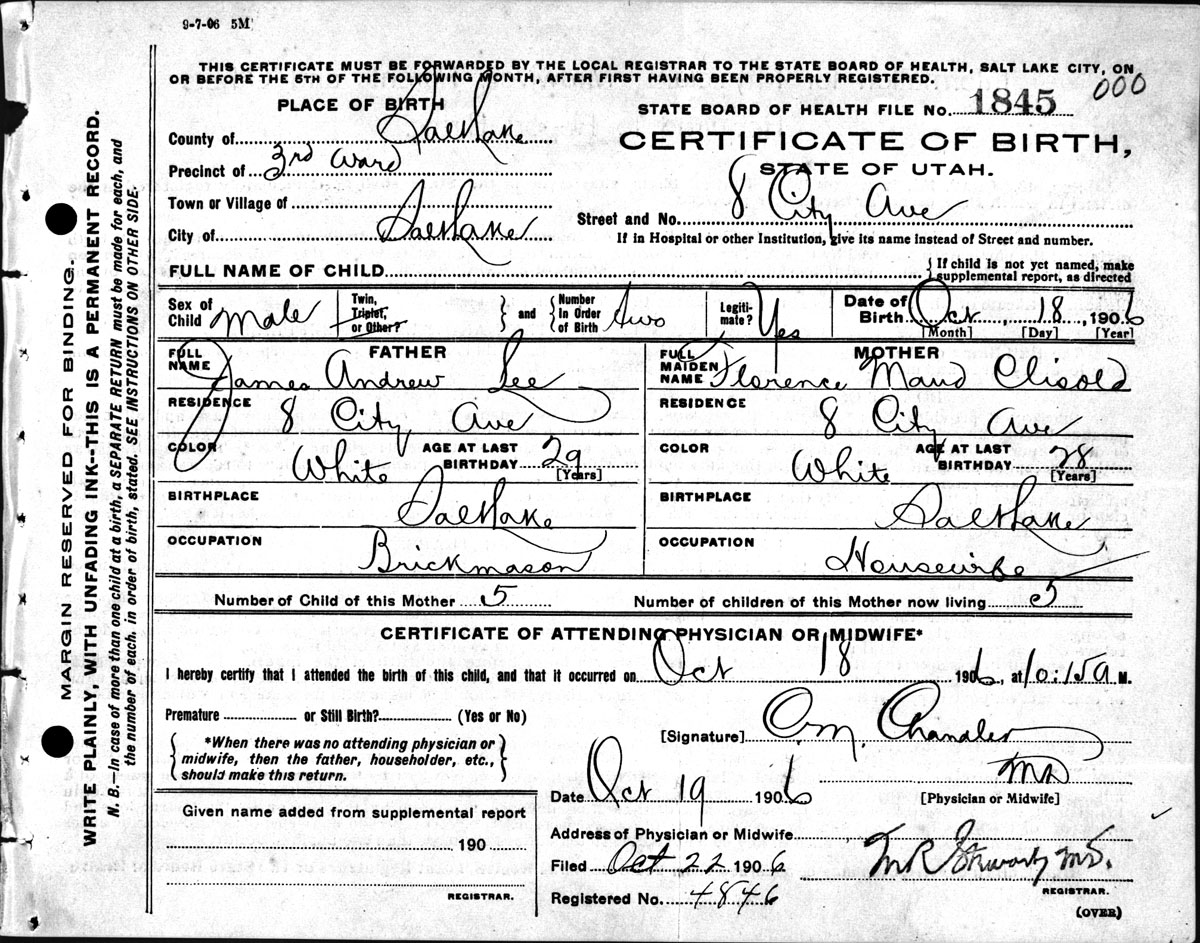 9-7-06 5M
THIS CERTIFICATE MUST BE FORWARDED BY THE LOCAL REGISTRAR TO THE STATE BOARD OF HEALTH, SALT LAKE CITY, ON
OR BEFORE THE 5TH OF THE FOLLOWING MONTH, AFTER FIRST HAVING BEEN PROPERLY REGISTERED.
000
PLACE OF BIRTH
County of Salt Lake
Precinct of 3rd Ward
Town or Village of
City of Salt Lake
STATE BOARD OF HEALTH FILE No. 1845
CERTIFICATE OF BIRTH,
STATE OF UTAH.
Street and No. 8 City Ave
If in Hospital or other Institution, give its name instead of Street and number.
FULL NAME OF CHILD
{If child is not yet named, make
supplemental report, as directed
Sex of Child Male
Twin, Triplet, or Other? } and { Number In Order of Birth Two
Legitimate? Yes
Date of Birth Oct 18, 1906
[Month] [Day] [Year]
FATHER
FULL NAME James Andrew Lee
RESIDENCE 8 City Ave
COLOR White AGE AT LAST BIRTHDAY 29 [Years]
BIRTHPLACE Salt Lake
OCCUPATION Brickmason
MOTHER
FULL MAIDEN NAME Florence Maud Clisold
RESIDENCE 8 City Ave
COLOR White AGE AT LAST BIRTHDAY 28 [Years]
BIRTHPLACE Salt Lake
OCCUPATION Housewife
Number of Child of this Mother 5 Number of children of this Mother now living 5
CERTIFICATE OF ATTENDING PHYSICIAN OR MIDWIFE*
I hereby certify that I attended the birth of this child, and that it occurred on Oct 18 1906, at 10:15 A M.
Premature or Still Birth? (Yes or No)
{ *When there was no attending physician or
midwife, then the father, householder, etc.,
should make this return. }
[Signature] O.M. Chandler
MD
[Physician or Midwife]
Date Oct 19 1906
Given name added from supplemental report
190
REGISTRAR.
Address of Physician or Midwife
Filed Oct 22 1906
M R Stewart M.D.
REGISTRAR.
Registered No. 4846
(OVER)
MARGIN RESERVED FOR BINDING.
WRITE PLAINLY, WITH UNFADING INK--THIS IS A PERMANENT RECORD.
N. B.--In case of more than one child at a birth, a SEPARATE RETURN must be made for each, and
the number of each. in order of birth, stated. SEE INSTRUCTIONS ON OTHER SIDE.